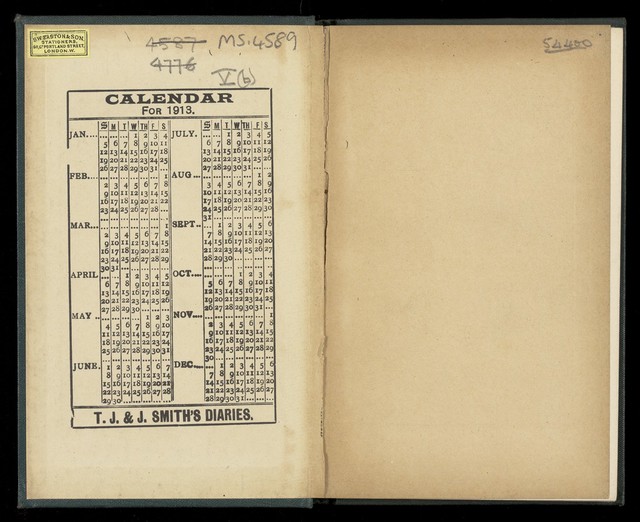 STATIONERS,
PORTLAND STREET,
LONDON.W.
4587 MS.4589
4776
V(b)
54400
CALENDAR
FOR 1913.
S M T W TH F S
JAN.... ... ... ... 1 2 3 4
5 6 7 8 9 10 11
12 13 14 15 16 17 18
19 20 21 22 23 24 25
26 27 28 29 30 31 ...
FEB.... ... ... ... ... ... ... 1
2 3 4 5 6 7 8
9 10 11 12 13 14 15
16 17 18 19 20 21 22
23 24 25 26 27 28 ...
MAR... ... ... ... ... ... ... 1
2 3 4 5 6 7 8
9 10 11 12 13 14 15
16 17 18 19 20 21 22
23 24 25 26 27 28 29
30 31 ... ... ... ... ...
APRIL ... ... 1 2 3 4 5
6 7 8 9 10 11 12
13 14 15 16 17 18 19
20 21 22 23 24 25 26
27 28 29 30 ... ... ...
MAY .. ... ... ... ... 1 2 3
4 5 6 7 8 9 10
11 12 13 14 15 16 17
18 19 20 21 22 23 24
25 26 27 28 29 30 31
JUNE. 1 2 3 4 5 6 7
8 9 10 11 12 13 14
15 16 17 18 19 20 21
22 23 24 25 26 27 28
29 30 ... ... ... ... ...
S M T W TH F S
JULY. ... ... 1 2 3 4 5
6 7 8 9 10 11 12
13 14 15 16 17 18 19
20 21 22 23 24 25 26
27 28 29 30 31 ... ...
AUG... ... ... ... ... ... 1 2
3 4 5 6 7 8 9
10 11 12 13 14 15 16
17 18 19 20 21 22 23
24 25 26 27 28 29 30
31 ... ... ... ... ... ...
SEPT.. ... 1 2 3 4 5 6
7 8 9 10 11 12 13
14 15 16 17 18 19 20
21 22 23 24 25 26 27
28 29 30 ... ... ... ...
OCT.... ... ... ... 1 2 3 4
5 6 7 8 9 10 11
12 13 14 15 16 17 18
19 20 21 22 23 24 25
26 27 28 29 30 31 ...
NOV.... ... ... ... ... ... ... 1
2 3 4 5 6 7 8
9 10 11 12 13 14 15
16 17 18 19 20 21 22
23 24 25 26 27 28 29
30 ... ... ... ... ... ...
DEC.... ... 1 2 3 4 5 6
7 8 9 10 11 12 13
14 15 16 17 18 19 20
21 22 23 24 25 26 27
28 29 30 31 ... ... ...
T. J. & J. SMITH'S DIARIES.